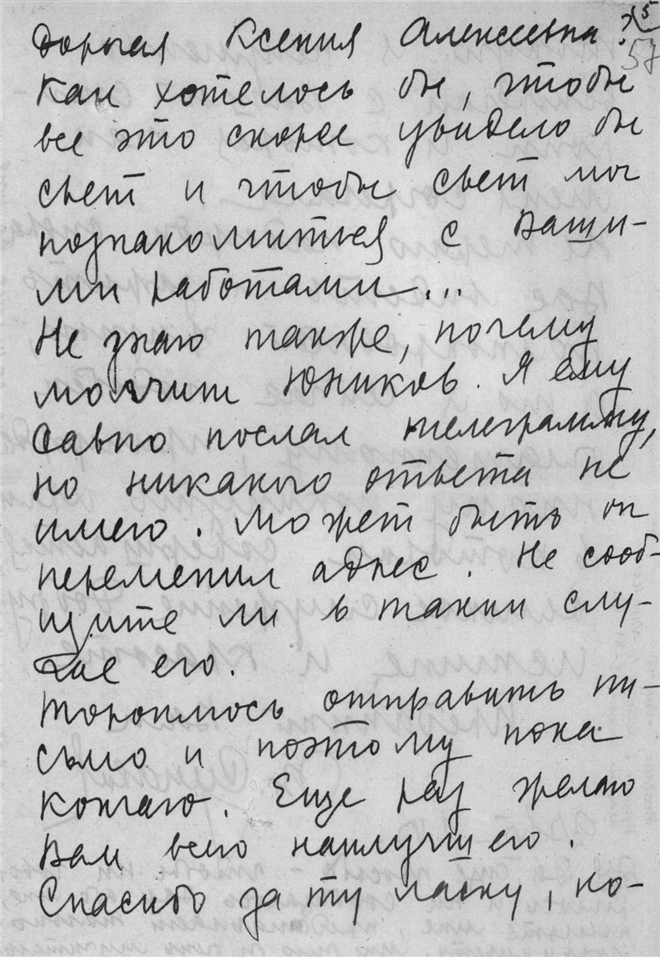 Дорогая Ксения Алексеевна!
Как хотелось бы, чтобы
все это скорее увидело бы
свет и чтобы свет мог
познакомиться с Ваши-
ми работами...
Не знаю также, почему
молчит Юников. Я ему
давно послал телеграмму,
но никакого ответа не
имею. Может быть он
переменил адрес. Не сооб-
щите ли в таком слу-
чае его.
Тороплюсь отправить пи-
сьмо и поэтому пока
кончаю. Еще раз желаю
Вам всего наилучшего.
Спасибо за ту ласку, ко-